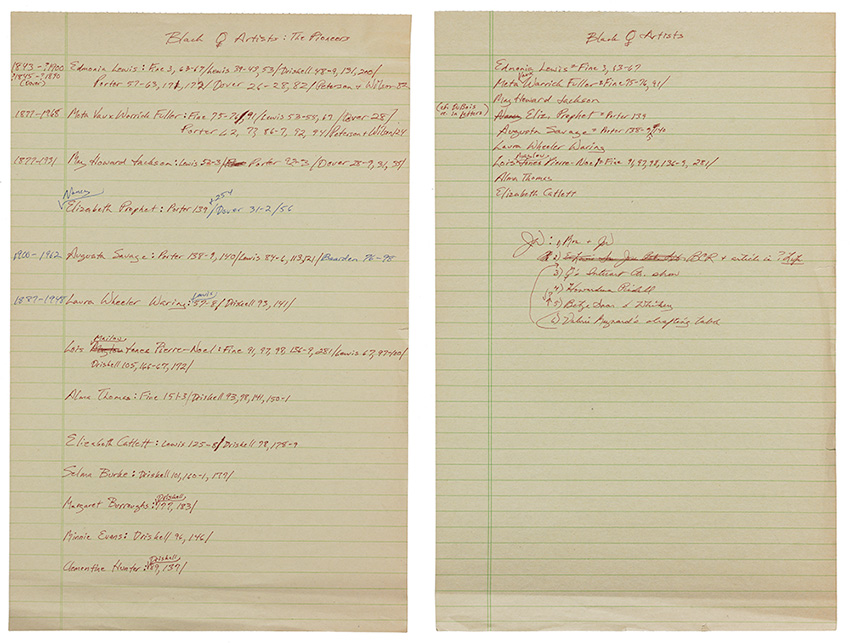 Black ♀ Artists: The Pioneers
1843-?1900
?1845-?1890
(Dover)
Edmonia Lewis: Fine 3, 63-67/Lewis 39-43, 53/Driskell 48-9, 131, 200/
Porter 57-63, 171, 172/Dover 26-28, 82/Peterson + Wilson
1877-1968 Meta Vaux Warrick Fuller: Fine 75-76, 91/Lewis 53-55, 69/Dover 28/
Porter 62, 77, 86-7, 92, 94/Peterson + Wilson 24
1877-1931 May Howard Jackson: Lewis 52-3/ Porter 92-3/Dover 28-9, 31, 55/
Nancy
+ 254
Elizabeth Prophet: Porter 139/Dover 31-2/56
1900-1962 Augusta Savage: Porter 138-9, 140/Lewis 84-6, 113, 121/Bearden 76-98
1887-1948 Laura Wheeler Waring: Lewis 59-8/Driskell 93, 141/
Mailou
Lois Jones Pierre-Noel: Fine 91, 97, 98, 136-9, 281/Lewis 67, 97-100/
Driskell 105, 166-67, 172/
Alma Thomas: Fine 151-3/Driskell 93, 98, 141, 150-1
Elizabeth Catlett: Lewis 125-8/Driskell 78, 178-9
Selma Burke: Driskell 101, 160-1, 179/
Driskell
Margaret Burroughs: 177, 183/
Minnie Evans: Driskell 96, 146/
Driskell
Clementine Hunter: 89, 137/
Black ♀ Artists
Edmonia Lewis = Fine 3, 63-67
Vaux
Meta Warrick Fuller = Fine 75-76, 91/
May Howard Jackson
(cf. DuBois
in letters)
Nancy Eliz. Prophet = Porter 139
Augusta Savage = Porter 138-9, 140
Laura Wheeler Waring
Mailou
Lois Jones Pierre-Noel = Fine 91, 97, 98, 136-9, 281/
Alma Thomas
Elizabeth Catlett
JW: 1) Mom + JW
2) BCR + article in ? Life
3) Q's Intern Co. show
4) Howardena Pindell
5) Betye Saar & Whitney
6) Valerie Maynard's drafting table